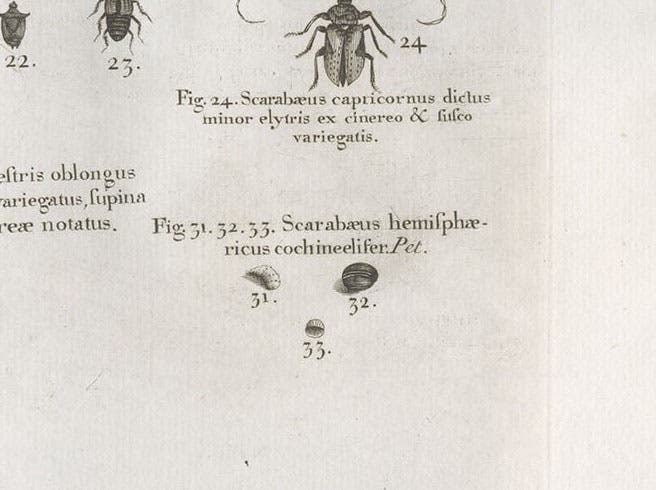 22.
23.
24
Fig. 24. Scarabæus capricornus dictus
minor elytris ex cinereo & fuſco
variegatis.
eſtris oblongus
variegatus, ſupina
reæ notatus.
Fig. 31. 32. 33. Scarabæus hemiſphæ-
ricus cochineelifer. Pet.
31.
32.
33.